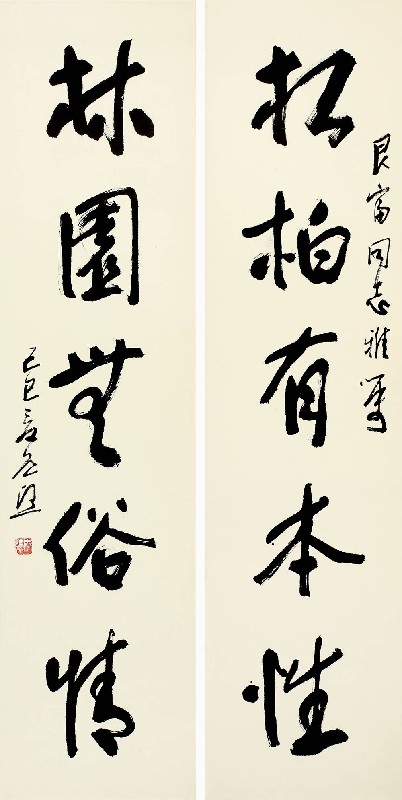 松柏有本性
良富同志雅属
林園無俗情
己巳